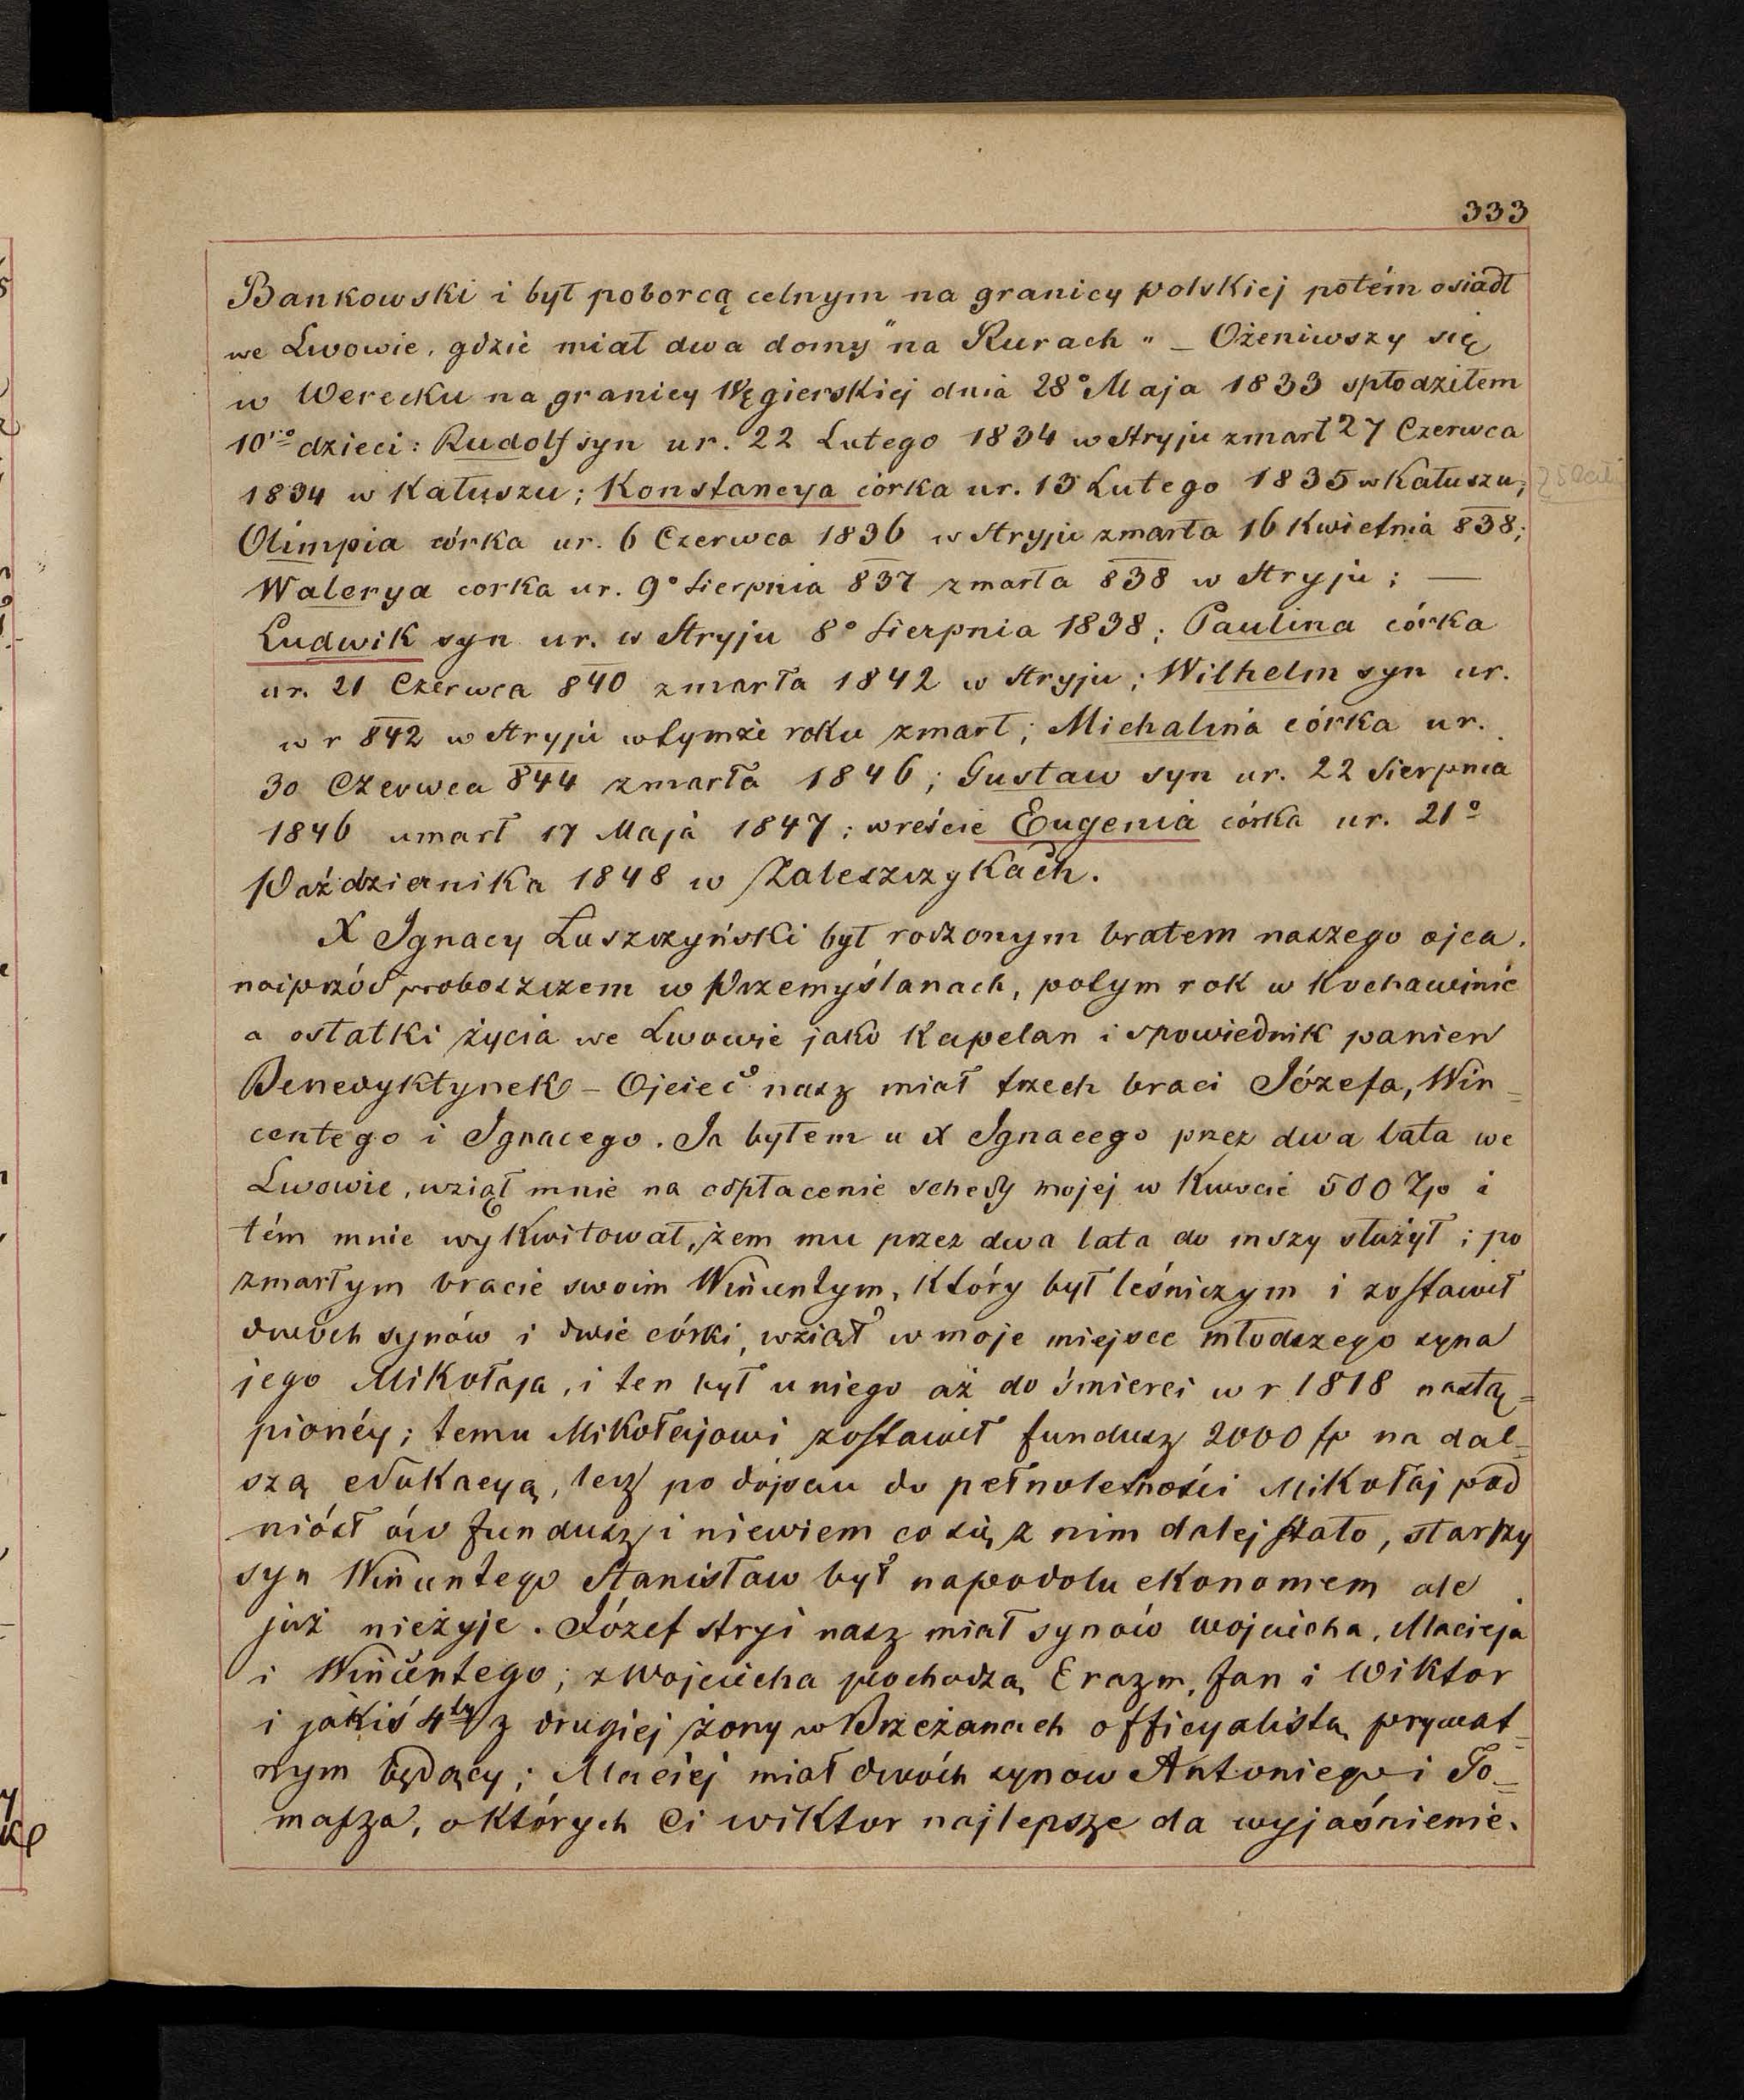 333
Bankowski i był poborcą celnym na granicy polskiej potém osiadł
we Lwowie, gdzie miał dwa domy "na Rurach" – Ożeniwszy się
w Werecku na granicy Węgierskiej dnia 28° Maja 1833 spłodziłem
10ro dzieci: Rudolf syn ur. 22 Lutego 1834 w Stryju zmarł 27 Czerwca
1834 w Kałuszu; Konstancya córka ur. 15 Lutego 1835 w Kałuszu;
Olimpia córka ur. 6 Czerwca 1836 w Stryju zmarła 16 Kwietnia 838;
Walerya corka ur. 9° Sierpnia 837 zmarła 838 w Stryju; —
Ludwik syn ur. w Stryju 8° Sierpnia 1838; Paulina córka
ur. 21 Czerwca 840 zmarła 1842 w Stryju; Wilhelm syn ur.
w r 842 w Stryju w tymże roku zmarł; Michalina córka ur.
30 Czerwca 844 zmarła 1846; Gustaw syn ur. 22 Sierpnia
1846 umarł 17 Maja 1847; wreście Eugenia córka ur. 21°
Października 1848 w Zaleszczykach.
X Ignacy Łuszczyński był rodzonym bratem naszego ojca.
najprzód proboszczem w Przemyślanach, potym rok w Kochawinie
a ostatki życia we Lwowie jako Kapelan i spowiednik panien
Benedyktynek – Ojciec nasz miał trzech braci Józefa, Win=
centego i Ignacego. Ja byłem u X Ignacego przez dwa lata we
Lwowie, wziął mnie na odpłacenie schedy mojej w Kwocie 500 Zp i
tém mnie wykwitował, żem mu przez dwa lata do mszy służył; po
zmarłym bracie swoim Wincentym, który był leśniczym i zostawił
dwóch synów i dwie córki, wziął w moje miejsce młodszego syna
jego Mikołaja, i ten był u niego aż do śmierci w r 1818 nastą=
pionéy; temu Mikołajowi zostawił fundusz 2000 fr na dal=
szą edukacyą, lecz po dojściu do pełnoletności Mikołaj pod
niósł ów fundusz i niewiem co się z nim dalej stało, starszy
syn Wincentego Stanisław był na podolu ekonomem ale
już nieżyje. Józef stryj nasz miał synów Wojciecha, Macieja
i Wincentego; z Wojciecha pochodzą Erazm, Jan i Wiktor
i jakiś 4ty z drugiej żony w Brzeżanach officyalistą prywat=
nym będący; Maciej miał dwóch synow Antoniego i To=
masza, o których Ci Wiktor najlepsze da wyjaśnienie.